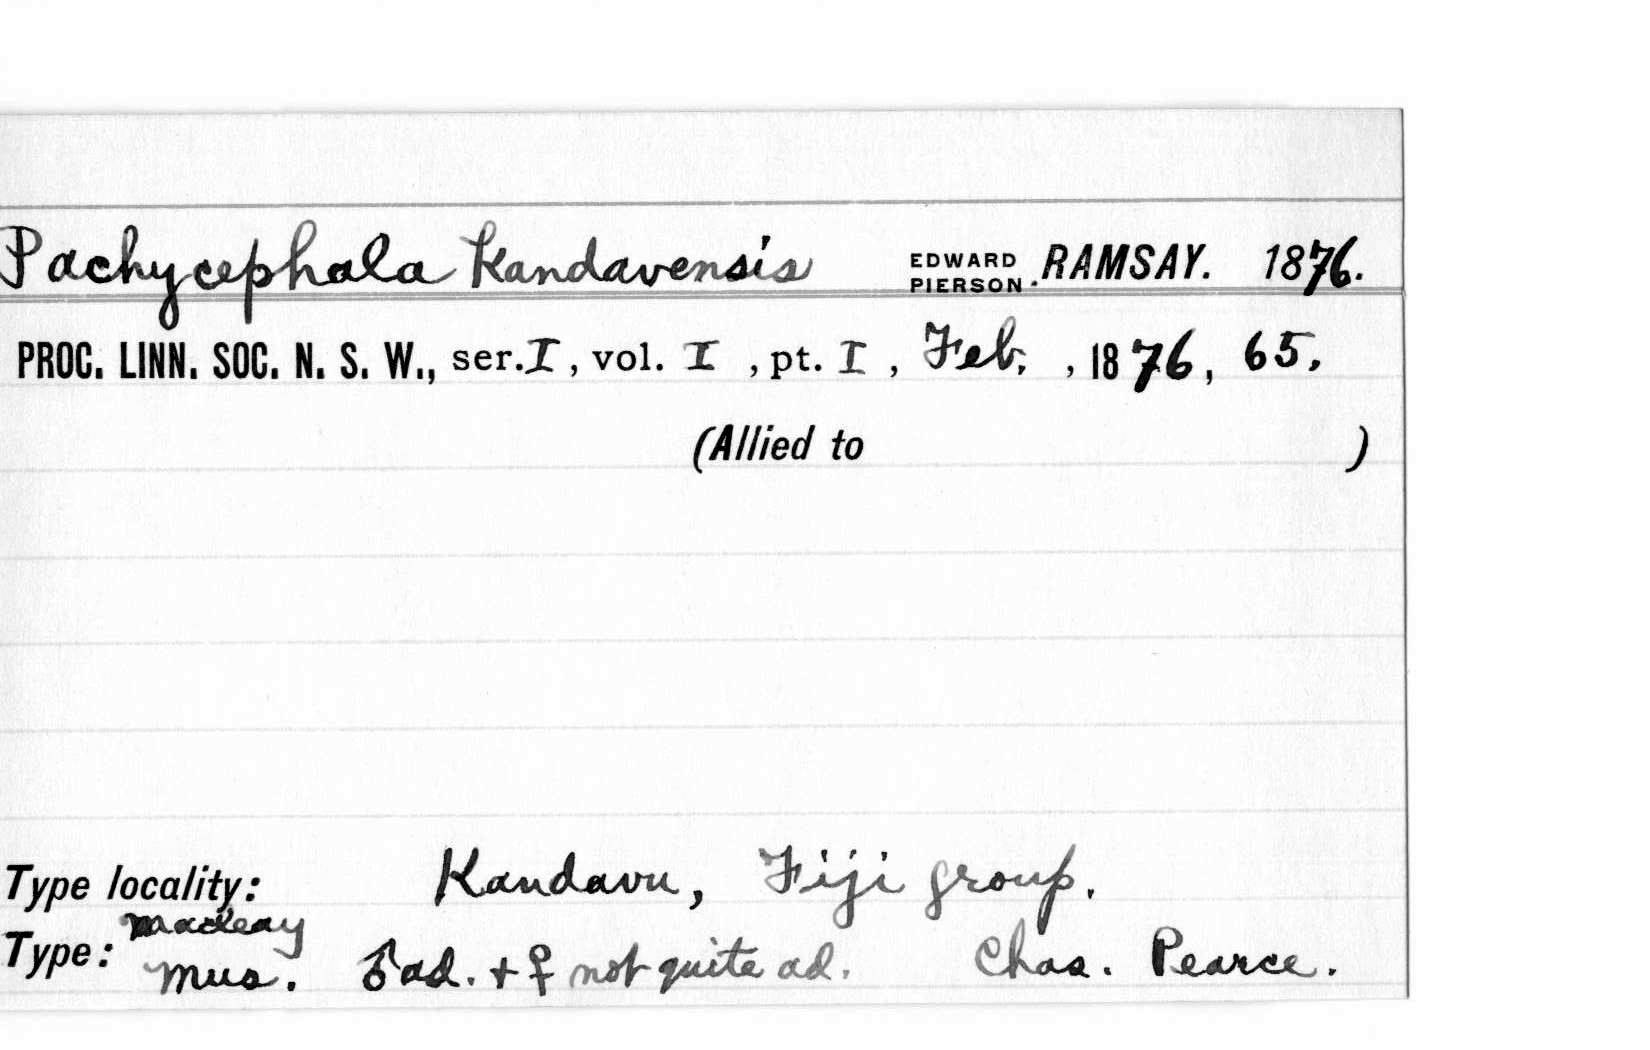 Pachycephala Kandavensis EDWARD PIERSON. RAMSAY. 1876.
PROC. LINN. SOC. N. S. W., ser. I, vol. I, pt. I, Feb., 1876, 65.
(Allied to )
Type locality: Kandavu, Fiji group.
Type: Macleay Mus. ♂ ad. + ♀ not quite ad. Chas. Pearce.